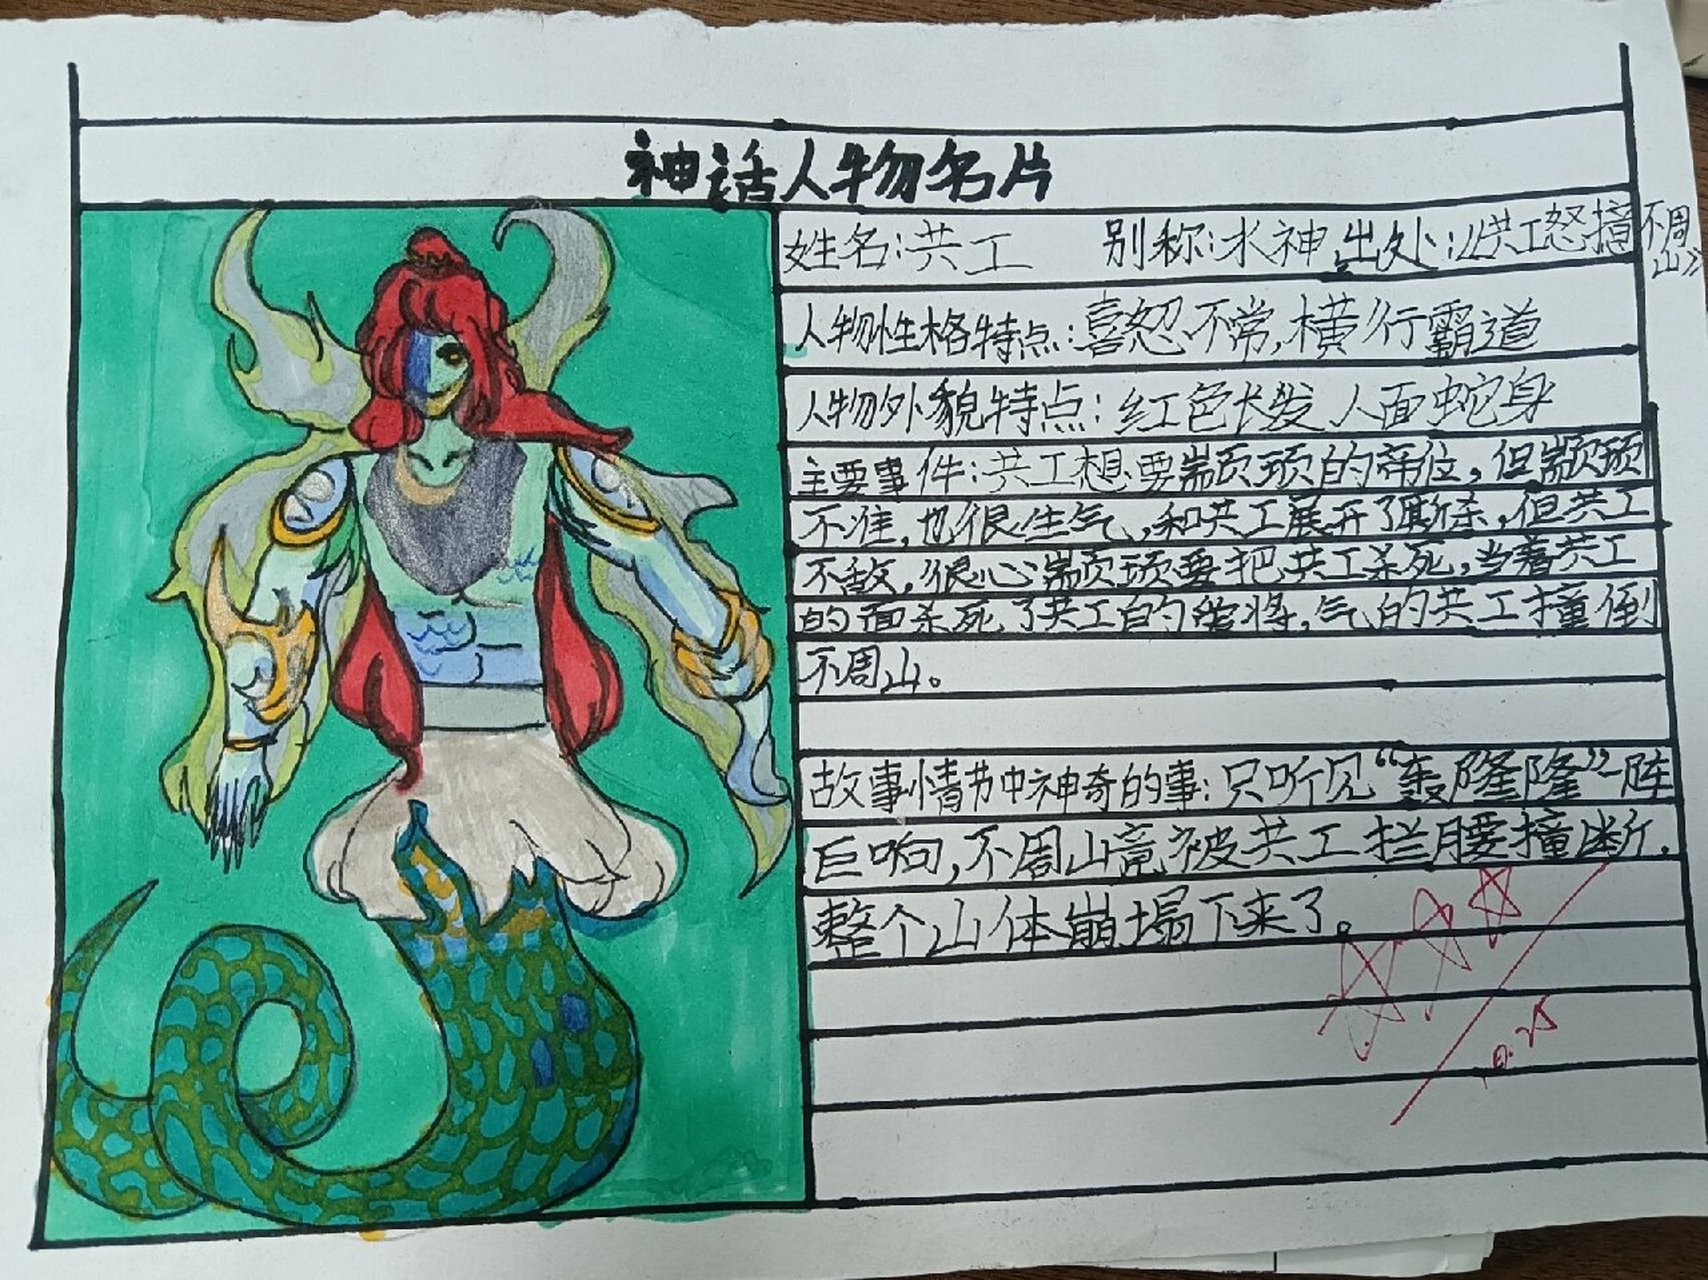 神话人物名片
姓名:共工 别称:水神 出处:《共工怒撞不周山》
人物性格特点:喜怒不常,横行霸道
人物外貌特点:红色长发 人面蛇身
主要事件:共工想要颛顼的帝位,但颛顼
不准,也很生气,和共工展开了厮杀,但共工
不敌,很心颛顼要把共工杀死,当着共工
的面杀死了共工的部将,气的共工撞倒
不周山。
故事情节中神奇的事:只听见“轰隆隆”一阵
巨响,不周山竟被共工拦腰撞断.
整个山体崩塌下来了。